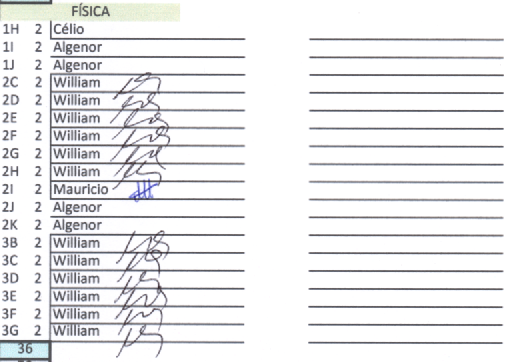 FÍSICA
1H 2 Célio
1I 2 Algenor
1J 2 Algenor
2C 2 William
2D 2 William
2E 2 William
2F 2 William
2G 2 William
2H 2 William
2I 2 Mauricio
2J 2 Algenor
2K 2 Algenor
3B 2 William
3C 2 William
3D 2 William
3E 2 William
3F 2 William
3G 2 William
36